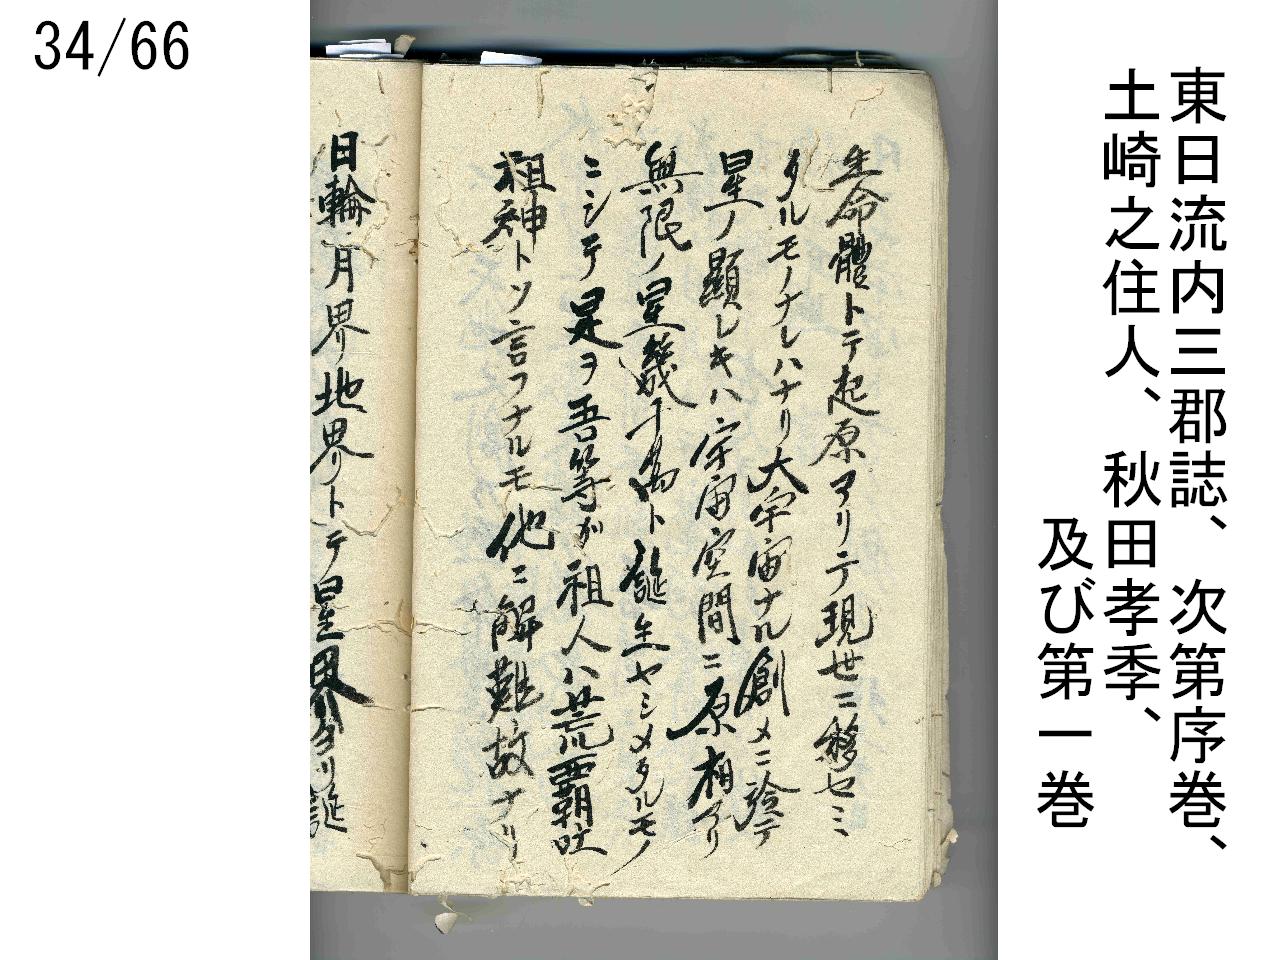 34/66
東日流内三郡誌、次第序巻、
土崎之住人、秋田孝季、
及び第一巻
生命體トテ起原アリテ現世ニ移セミ
タルモノナレハナリ大宇宙ナル創メニ於テ
星ノ顯レキハ宇宙空間ニ原相アリ
無限ノ星幾千為ト誕生ヤシメタルモノ
ニシテ是ヲ吾等が祖人ハ荒覇吐
祖神トソ言フナルモ他ニ解難故ナリ
日輪月界地界トテ星界ハタリ誕